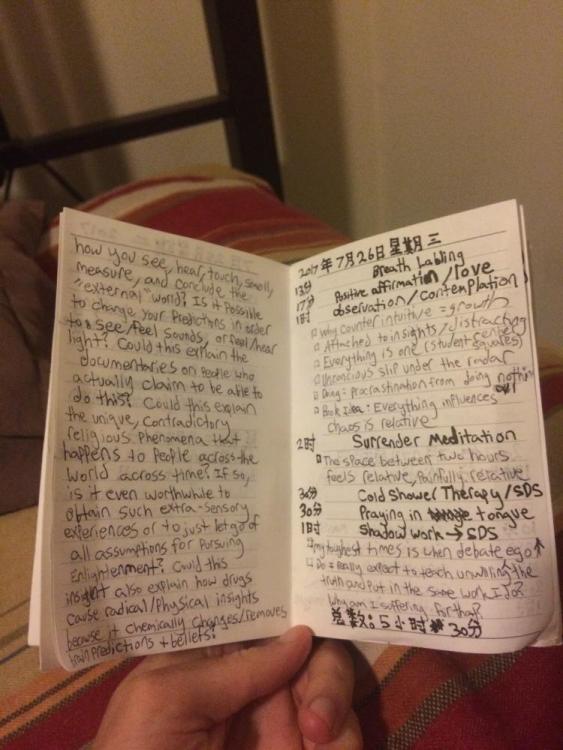 how you see, hear, touch, smell,
measure, and conclude the
"external" world? Is it possible
to change your Predictions in order
to see/feel sounds, or feel/hear
light? Could this explain the
documentaries on people who
actually claim to be able to
do this? Could this explain
the unique, contradictory
religious phenomena that
happens to people across the
world across time? If so,
is it even worthwhile to
obtain such extra-sensory
experiences or to just let go of
all assumptions for pursuing
Enlightenment? Could this
insight also explain how drugs
cause radical/physical insights
because it chemically changes/removes
brain predictions + beliefs?
2017年7月26日星期三
Breath Labling
Positive affirmation/love
17分
1时 observation/contemplation
Why counter intuitive = growth
Attached to insights/distracting
Everything is one (student, center, squares)
Unconcious slip under the radar
Doing: procrastination from doing nothing
Book Idea: Everything influences all
chaos is relative
2时 Surrender Meditation
The space between two hours
feels relative, painfully relative
30分 Cold Shower Therapy/SDS
30分 Praying in tongue
1时 Shadow work → SDS
my toughest times is when debate ego ↑
Do I really expect to teach unwilling the
truth and put in the same work I do?
Why am I suffering for that?
总数: 5小时 30分